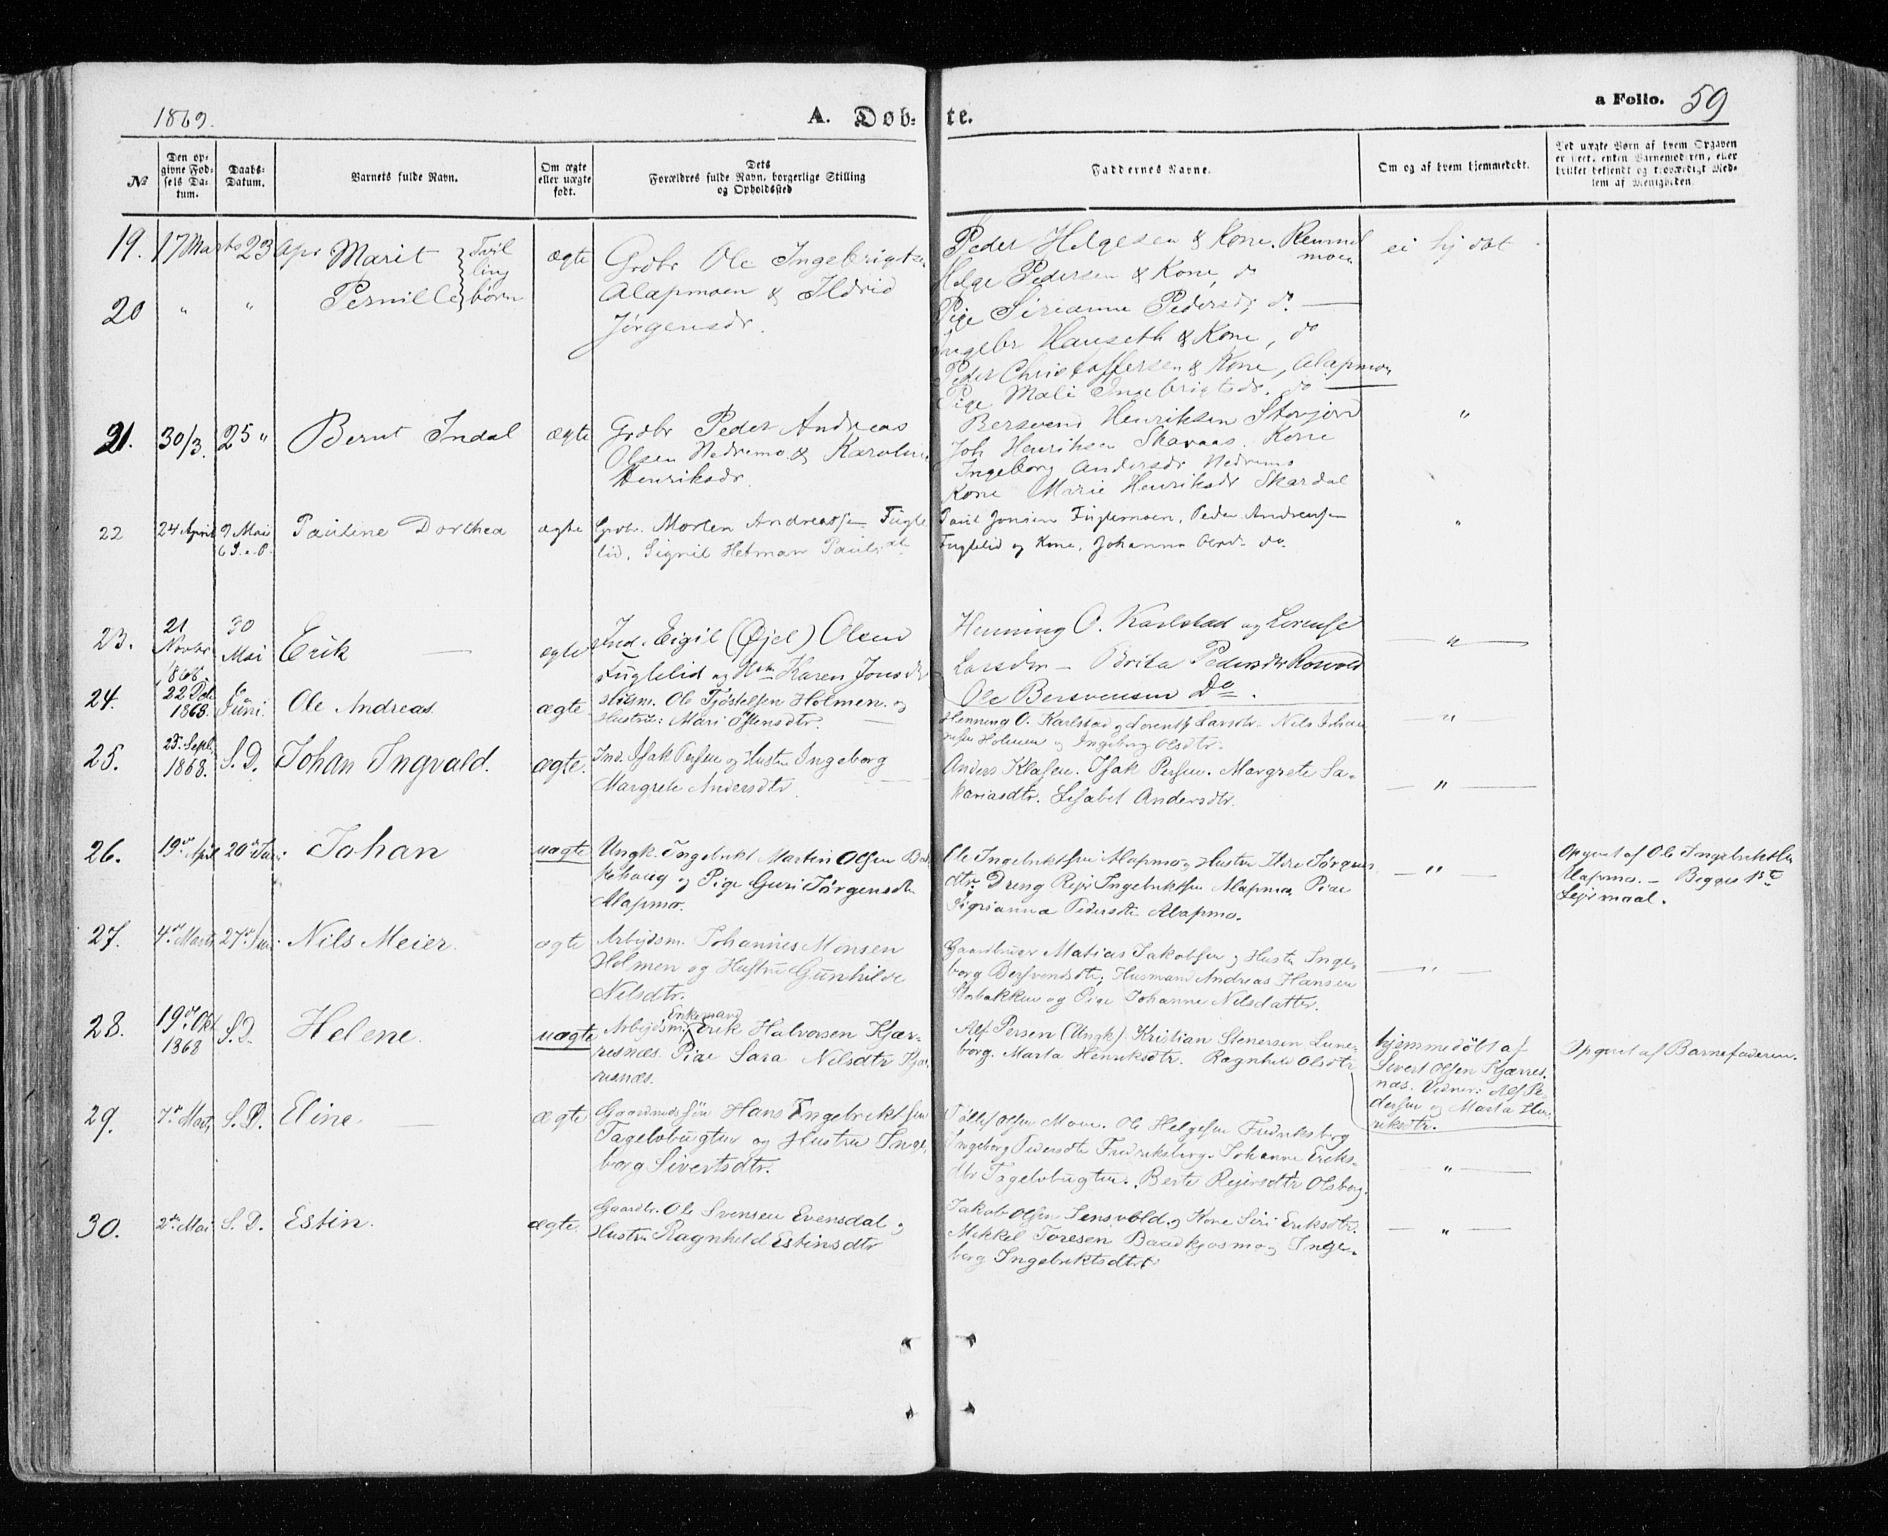 1869.
A. Døb-
te.
a Folio. 59
No
Den op-
givne Fød-
sels Da-
tum.
Daabs-
Datum.
Barnets fulde Navn.
Om ægte
eller uægte
født.
Dets
Forældres fulde Navn, borgerlige Stilling
og Opholdssted
Faddernes Navne.
Om og af hvem hjemmedøbt.
Ved uægte Børn af hvem Opgaven
er skeet, enten Barnemoderen, eller
hvilket bekjendt og troværdigt Med-
lem af Menigheden
19. 17 Marts 23 Apr Marit Tvil
ling
børn
ægte Grdbr Ole Ingebrigts.
Alapmoen & Ildrid
Jørgensdr.
Peder Helgesen & Kone, Remmel
moen
Helge Pedersen & Kone, do
Pige Sirianna Pedersd, do
Ingebr Hauseth & Kone, do
Peder Christoffersen & Kone, Alapmoen
Pige Mali Ingebrigtsdr do
ei hj døbt
20 " " Pernille
21. 30/3. 25 " Bernt Indal ægte Grdbr Peder Andreas
Olsen Nedremo & Karoline
Henriksdr.
Bersvend Henriksen Storjord
Joh Henriksen Skavaas. Kone
Ingeborg Andersdr Nedremo
Kone Marie Henriksdr Skardal
"
22 24 April 9 Mai
6 S. e. P.
Pauline Dorthea ægte Grdbr. Morten Andreassen Fugle
lid, Signil Hetman Paulsdt
Paul Jonsen Fuglemoen, Peder Andreasen
Fuglelid og Kone, Johanna Olsd. do.
"
23. 21
Novbr
1868
30
Mai
Erik ægte Ind. Eigil (Øjel) Olsen
Fuglelid og Karen Jonsdr
Henning O. Karlstad og Lorense
Larsdr - Brita Pedersdr Rosvold
Ole Bersvensen Do.
"
24. 22
1868.
Juni. Ole Andreas ægte Ole Tjøstelsen Holmen og
Hustru: Mari
Henning O. Karlstad og Lorents Larsdr. Nils Johan
nesen Holmen og Ingeborg Olsdtr.
"
25. 25. Septb.
1868.
S. D. Johan Ingvald. ægte. Ind. Isak Persen og Hustru Ingeborg
Margrete Andersdtr
Anders Klasen. Isak Persen. Margrete Sa-
kariasdtr. Lisabet Andersdtr.
"
26. 19de April 20de Juni Johan uægte Ungk. Ingebrikt Martin Olsen Bak
kehaug og Pige Guri Jørgensdtr
Alapmo.
Ole Ingebriktsen Alapmo og Hustru Ildri Jørgens
dtr. Dreng Reier Ingebriktsen Alapmo. Pige
Sigrianna Pedersdtr Alapmo.
"
Opgivet af Ole Ingebriktsen
Alapmo. - Begges 1ste
Lejermaal.
27. 4de Marts 27de Juni Nils Meier. ægte Arbejdsm. Johannes Monsen
Holmen og Hustru Gunhilde
Nilsdtr.
Gaardbruger Matias Jakobsen og Hustru Inge-
borg Bersvendsdtr, Husmand Andreas Hansen
Stobakken og Pige Johanne Nilsdatter.
"
28. 19de Okt
1868
S. D. Helene. uægte Arbejdsm. Enkemand Erik Halvorsen Kjær-
resnæs. Pige Sara Nilsdtr Kjær
resnæs.
Alf Persen (Ungk) Kristian Stenersen Lune-
borg. Marta Henriksdtr. Ragnhild Olsdtr
hjemmedøbt af
Sivert Olsen Kjærres-
næs. Vidner: Alf Pe-
dersen og Marta Hen-
riksdtr.
Opgivet af Barnefaderen.
29. 7de Marts S. D. Eline. ægte Gaardmdssøn Hans Ingebriktsen
Tagelvbugten og Hustru Inge-
borg Sivertsdtr.
Tollef Olsen Moen. Ole Helgesen Fredriksberg
Ingeborg Pedersdtr Fredriksberg. Johanne Eriks-
dtr Tagelvbugten. Berte Reiersdtr Olsborg.
"
30. 2den Mai S. D. Estin. ægte. Gaardbr. Ole Svensen Evensdal og
Hustru Ragnhild Estinsdtr
Jakob Olsen Sensvold og Kone Siri Eriksdtr.
Mikkel Toresen Baadkjosmo og Inge-
borg Ingebriktsdtr:
"